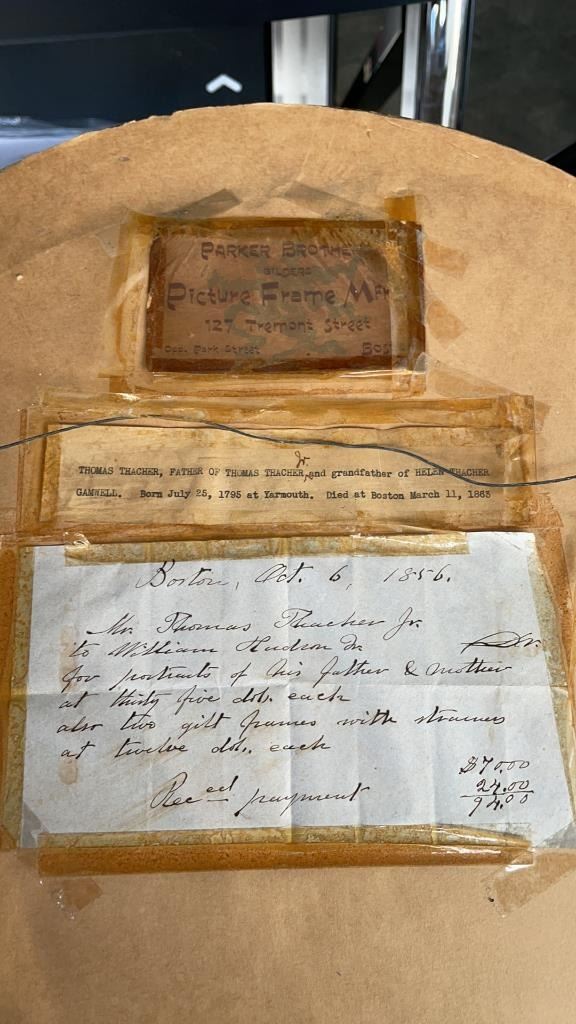 PARKER BROTHE
GILDERS
Picture Frame Mfr
127 Tremont Street
Opp. Park Street Bos
Jr.
THOMAS THACHER, FATHER OF THOMAS THACHER, and grandfather of HELEN THACHER
GAMWELL. Born July 25, 1795 at Yarmouth. Died at Boston March 11, 1863
Boston, Oct. 6, 1856.
Mr. Thomas Thacher Jr.
to William Hudson Jr. Dr.
for portraits of his father & mother
at thirty five dols. each
also two gilt frames with strainers
at twelve dols. each
$70.00
24.00
Rec'd payment 94.00